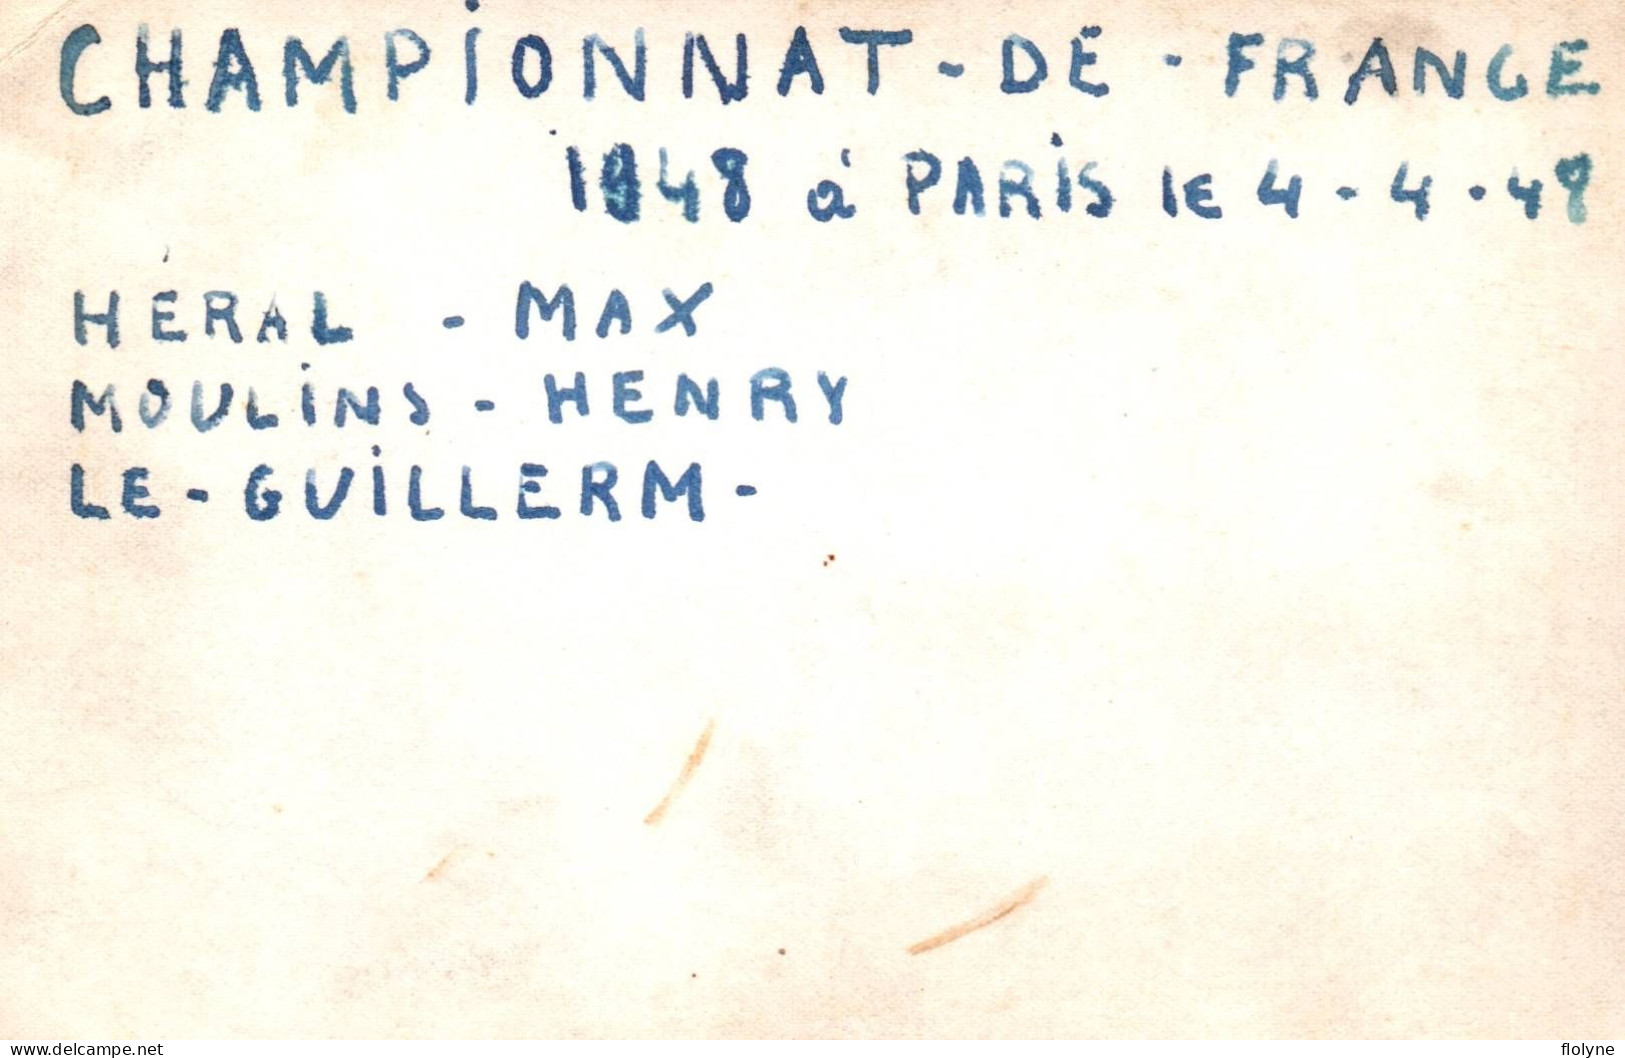 CHAMPiONNAT - DE - FRANCE
1948 à PARiS lE 4 - 4 - 48
HÉRAL - MAX
MOULiNS - HENRY
LE - GUiLLERM -
www.delcampe.net
flolyne